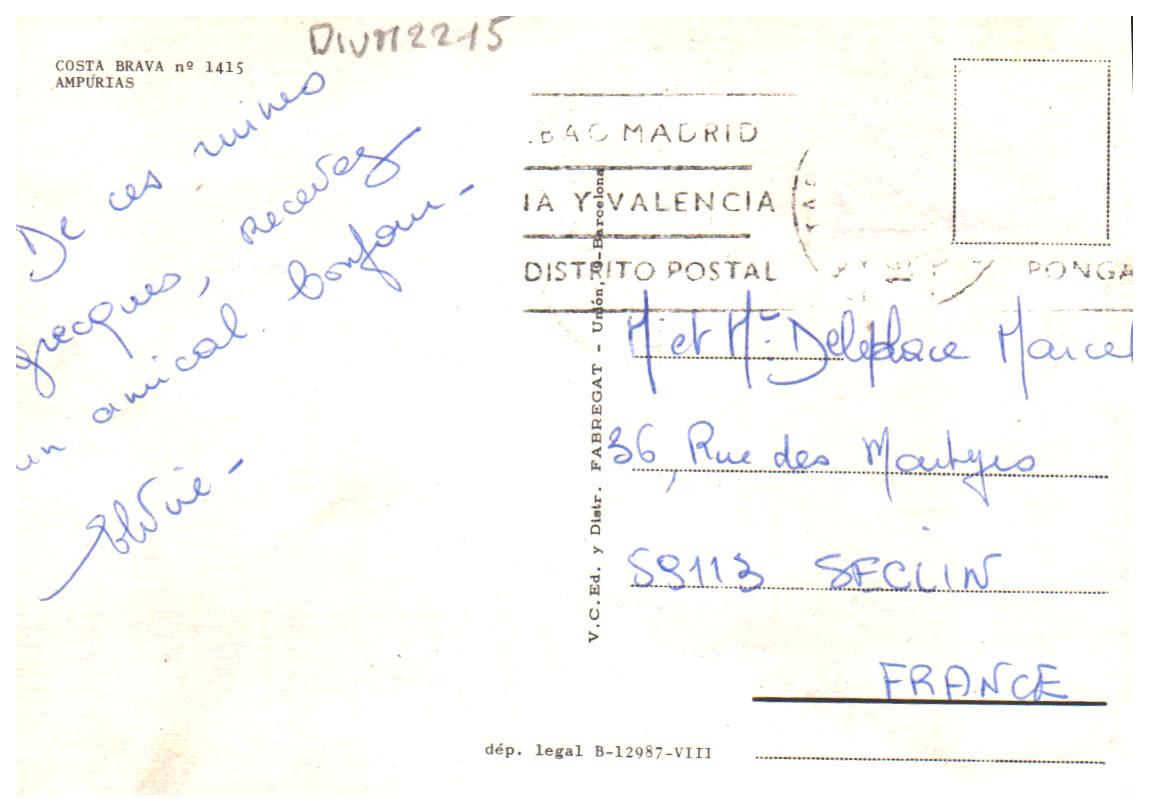 DIVM2215
COSTA BRAVA nº 1415
AMPÚRIAS
De ces ruines
grecques, recevez
un amical bonjour -
BAO MADRID
IA Y VALENCIA
DISTRITO POSTAL
PONGA
V.C.Ed. y Distr. FABREGAT - Unión, 9-Barcelona
M et Mᵉ Deleplace Marcel
36, Rue des Martyrs
59113 SECLIN
FRANCE
dép. legal B-12987-VIII